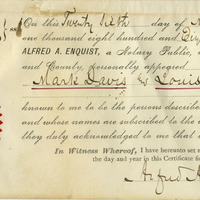 On this Twenty Sixth day of
one thousand eight hundred and
ALFRED A. ENQUIST, a Notary Public,
and County, personally appeared
Mark Davis & Louis
known to me to be the persons describe
and whose names are subscribed to the
they duly acknowledged to me that
In Witness Whereof, I have hereunto set
the day and year in this Certificate
Alfred A